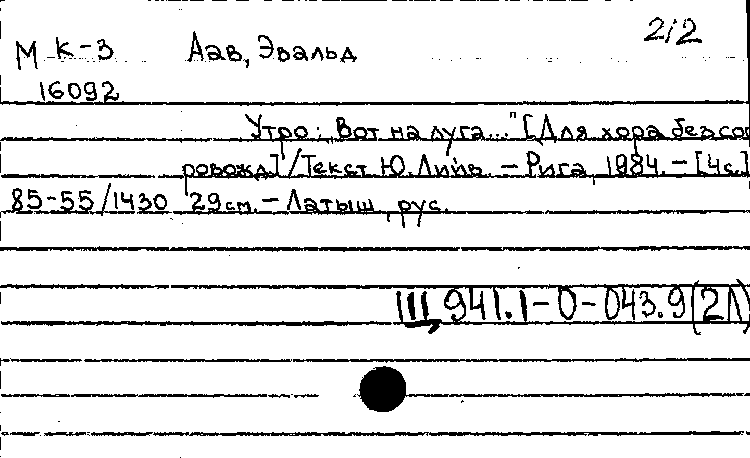 2/2
М К-3 Аав, Эвальд
16092
Утро: „Вот на луга..." [Для хора без соп
ровожд.] / Текст Ю. Лийв. – Рига, 1984. – [4с.]
85-55/1430 29см. – Латыш, рус.
Щ 941.1-0-043.9(2Л)